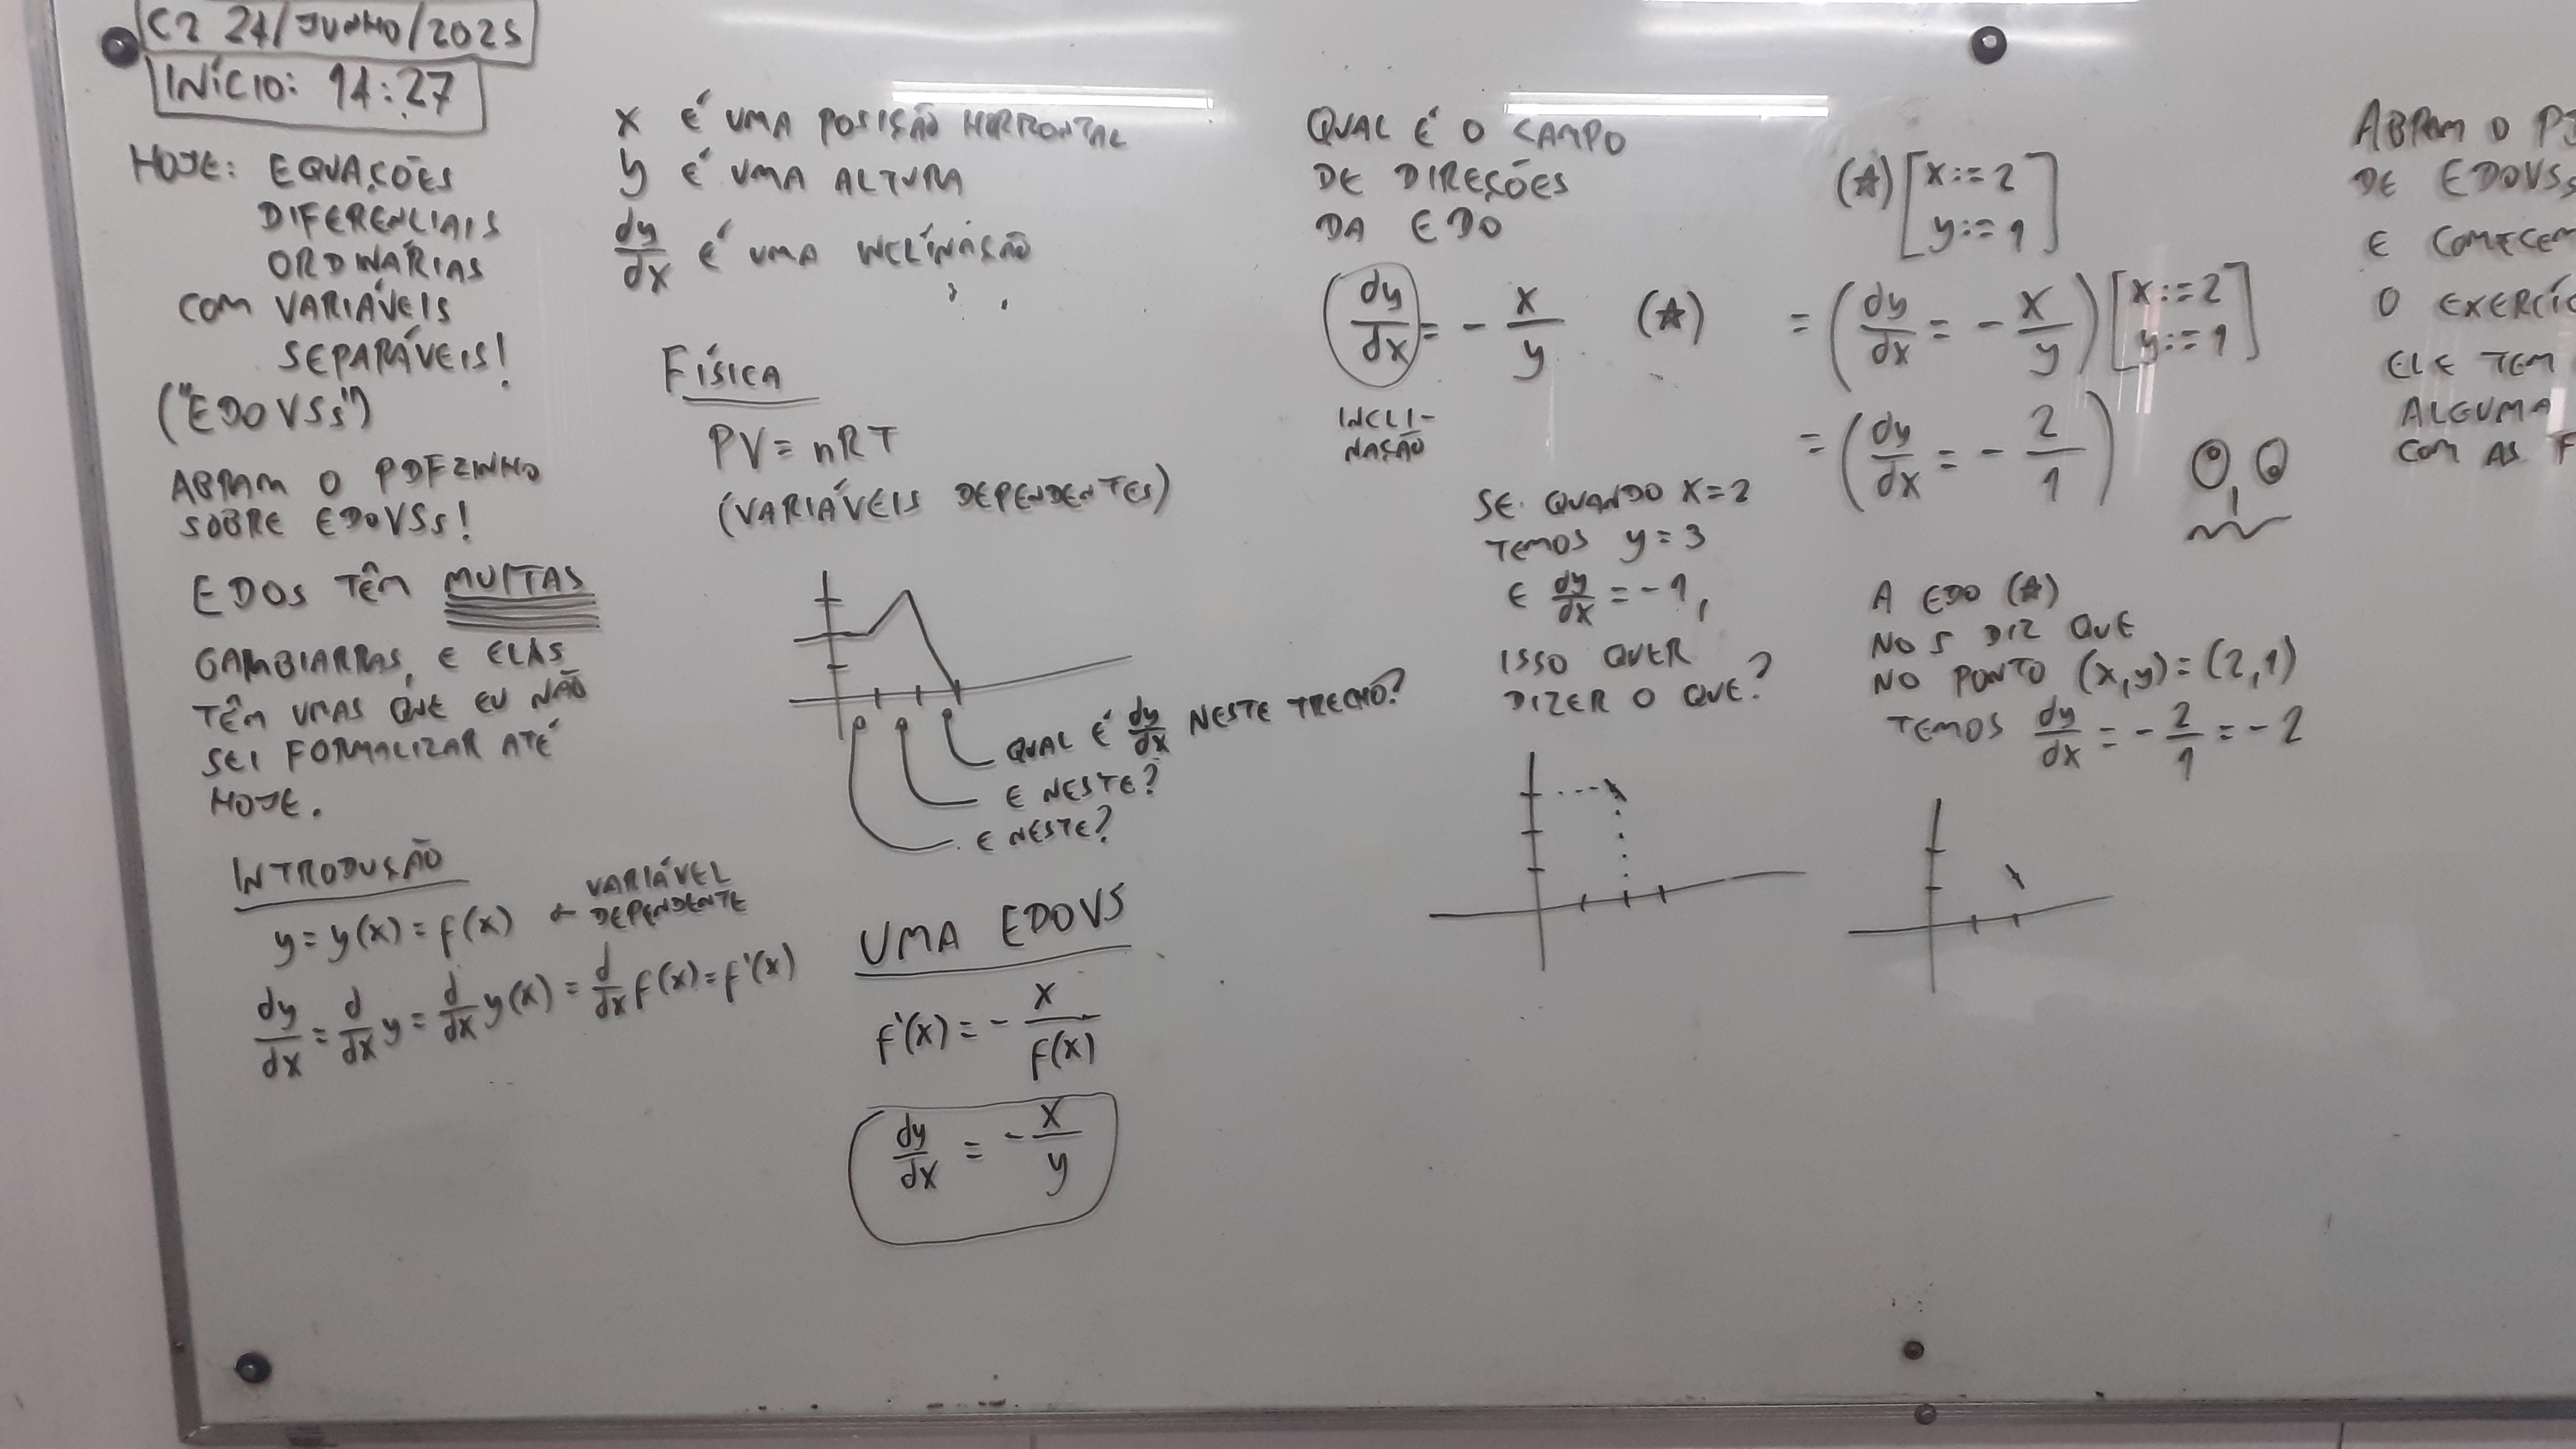 C2 24/JUNHO/2025
INÍCIO: 14:27
HOJE: EQUAÇÕES
DIFERENCIAIS
ORDINÁRIAS
COM VARIÁVEIS
SEPARÁVEIS!
("EDOVSs")
ABRAM O PDFZINHO
SOBRE EDOVSs!
EDOS TÊM MUITAS
GAMBIARRAS, E ELAS
TÊM UMAS QUE EU NÃO
SEI FORMALIZAR ATÉ
HOJE.
INTRODUÇÃO
y = y(x) = f(x) ← VARIÁVEL
DEPENDENTE
dy/dx = d/dx y = d/dx y(x) = d/dx f(x) = f'(x)
x É UMA POSIÇÃO HORIZONTAL
y É UMA ALTURA
dy/dx É UMA INCLINAÇÃO
FÍSICA
PV = nRT
(VARIÁVEIS DEPENDENTES)
QUAL É dy/dx NESTE TRECHO?
E NESTE?
E NESTE?
UMA EDOVS
f'(x) = - x/f(x)
dy/dx = - x/y
QUAL É O CAMPO
DE DIREÇÕES
DA EDO
dy/dx = - x/y (★)
INCLI-
NAÇÃO
SE QUANDO x=2
TEMOS y=3
E dy/dx = -1,
ISSO QUER
DIZER O QUE?
(★) [x:=2
y:=1]
= (dy/dx = - x/y) [x:=2
y:=1]
= (dy/dx = - 2/1)
A EDO (★)
NOS DIZ QUE
NO PONTO (x,y)=(2,1)
TEMOS dy/dx = - 2/1 = -2
ABRAM O
DE EDOVSs
E COMECEM
O
ELE TEM
ALGUMA
COM AS